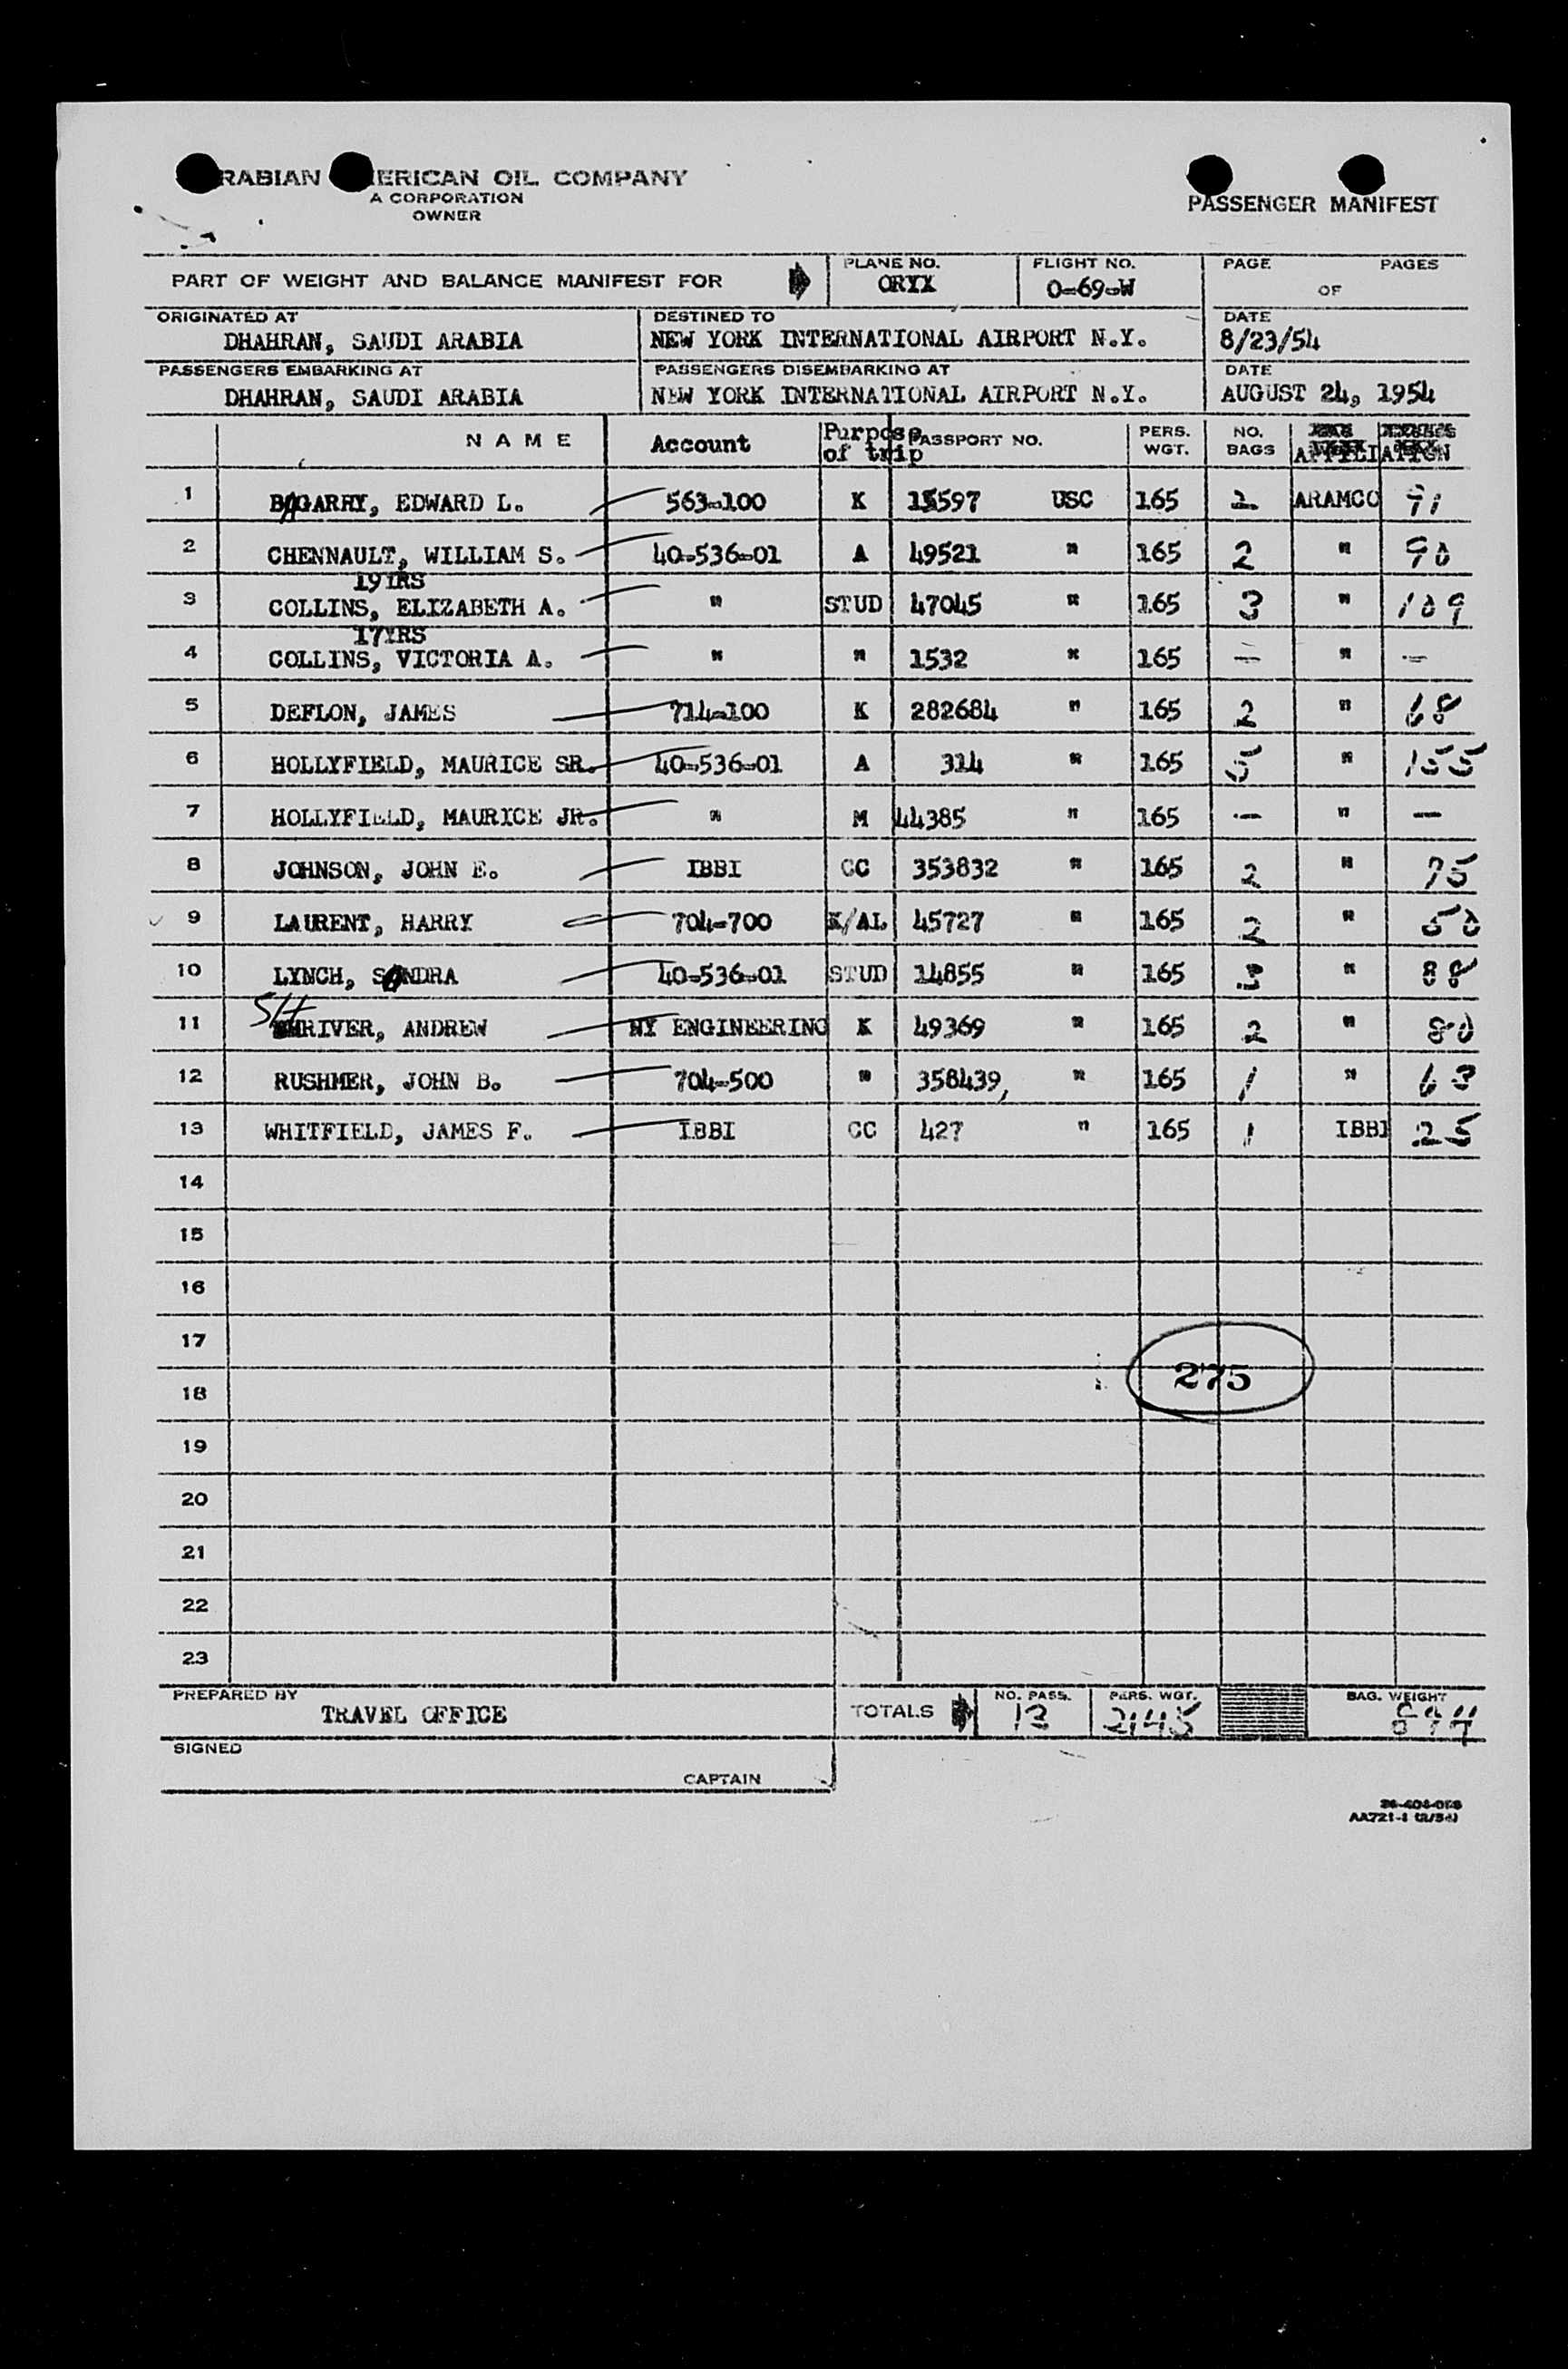 RABIAN ERICAN OIL COMPANY
A CORPORATION
OWNER
PASSENGER MANIFEST
PART OF WEIGHT AND BALANCE MANIFEST FOR
PLANE NO. ORYX
FLIGHT NO. O-69-W
PAGE OF PAGES
ORIGINATED AT DHAHRAN, SAUDI ARABIA
DESTINED TO NEW YORK INTERNATIONAL AIRPORT N.Y.
DATE 8/23/54
PASSENGERS EMBARKING AT DHAHRAN, SAUDI ARABIA
PASSENGERS DISEMBARKING AT NEW YORK INTERNATIONAL AIRPORT N.Y.
DATE AUGUST 24, 1954
NAME Account Purpose of trip PASSPORT NO. PERS. WGT. NO. BAGS AFFILIATION
1 BAGARRY, EDWARD L. 563-100 K 15597 USC 165 2 ARAMCO 91
2 CHENNAULT, WILLIAM S. 40-536-01 A 49521 " 165 2 " 90
19YRS
3 COLLINS, ELIZABETH A. " STUD 47045 " 165 3 " 109
17YRS
4 COLLINS, VICTORIA A. " " 1532 " 165 — " —
5 DEFLON, JAMES 714-100 K 282684 " 165 2 " 68
6 HOLLYFIELD, MAURICE SR. 40-536-01 A 314 " 165 5 " 155
7 HOLLYFIELD, MAURICE JR. " M 44385 " 165 — " —
8 JOHNSON, JOHN E. IBBI CC 353832 " 165 2 " 75
9 LAURENT, HARRY 704-700 K/AL 45727 " 165 2 " 50
10 LYNCH, SANDRA 40-536-01 STUD 14855 " 165 3 " 88
11 SHRIVER, ANDREW NY ENGINEERING K 49369 " 165 2 " 80
12 RUSHMER, JOHN B. 704-500 " 358439, " 165 1 " 63
13 WHITFIELD, JAMES F. IBBI CC 427 " 165 1 IBBI 25
14
15
16
17
275
18
19
20
21
22
23
PREPARED BY TRAVEL OFFICE
TOTALS NO. PASS. 13 PERS. WGT. 2145 BAG. WEIGHT 894
SIGNED
CAPTAIN
AA721-1 (2/54)